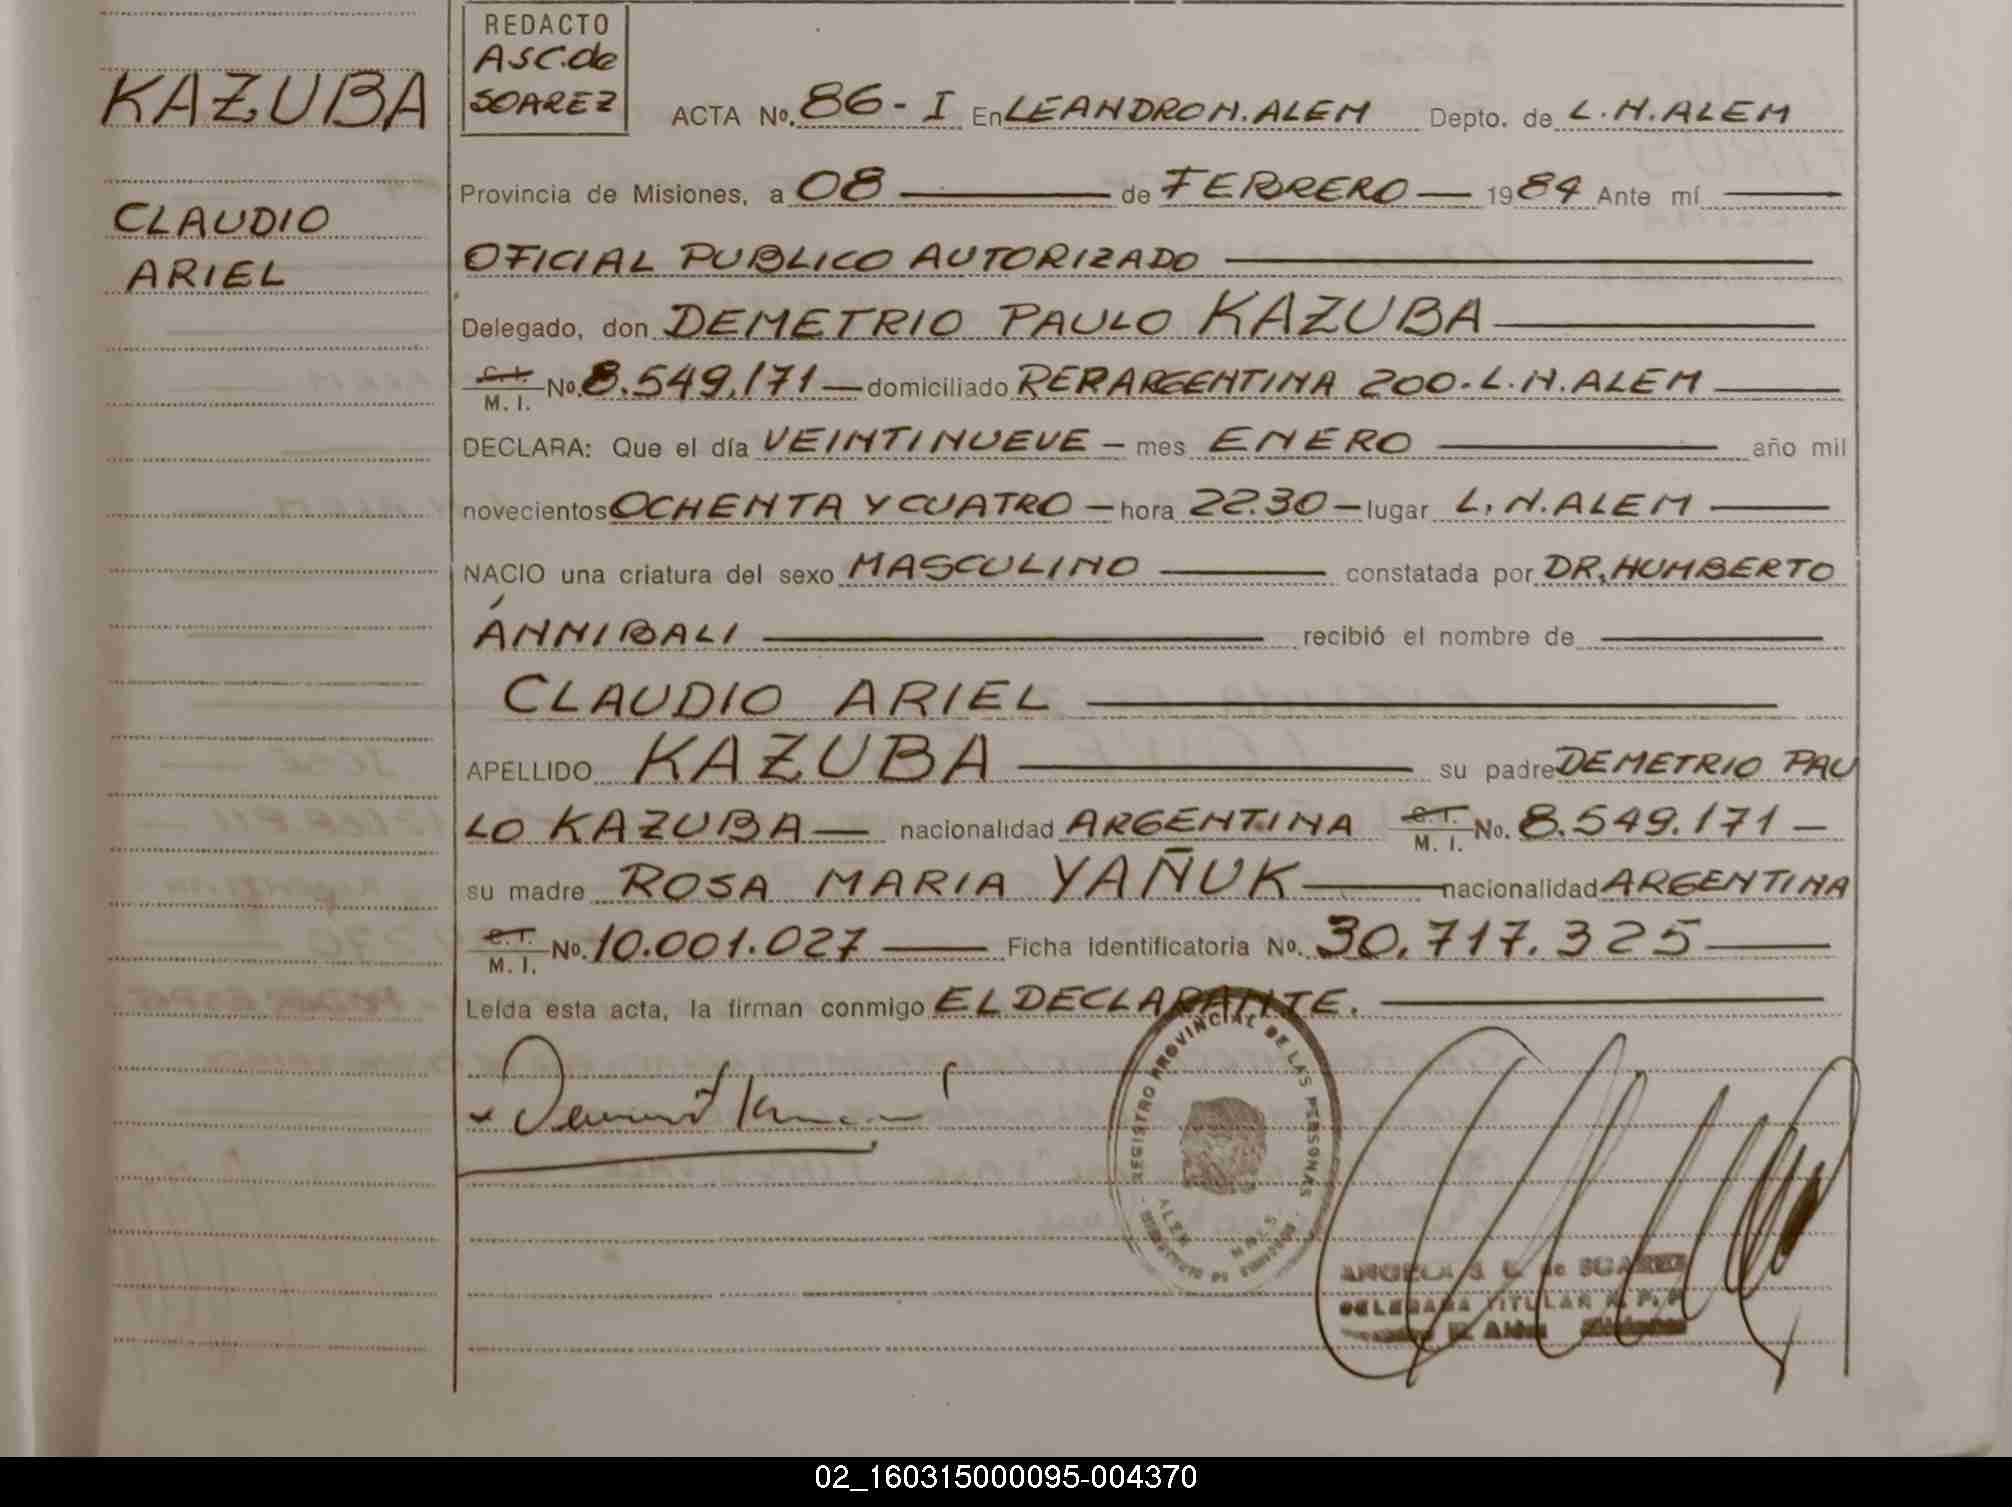 KAZUBA
CLAUDIO
ARIEL
REDACTO
ASC.de
SOAREZ
ACTA No. 86 - I En LEANDRO N. ALEM Depto. de L. N. ALEM
Provincia de Misiones, a 08 de FEBRERO 1984 Ante mí
OFICIAL PUBLICO AUTORIZADO
Delegado, don DEMETRIO PAULO KAZUBA
C.I. M. I. No. 8.549.171 domiciliado REP.ARGENTINA 200. L. N. ALEM
DECLARA: Que el día VEINTINUEVE mes ENERO año mil
novecientos OCHENTA Y CUATRO hora 22.30 lugar L. N. ALEM
NACIO una criatura del sexo MASCULINO constatada por DR. HUMBERTO
ÁNNIBALI recibió el nombre de
CLAUDIO ARIEL
APELLIDO KAZUBA su padre DEMETRIO PAU
LO KAZUBA nacionalidad ARGENTINA C.I. M. I. No. 8.549.171
su madre ROSA MARIA YAÑUK nacionalidad ARGENTINA
C.I. M. I. No. 10.001.027 Ficha identificatoria No. 30.717.325
Leída esta acta, la firman conmigo EL DECLARANTE.
REGISTRO PROVINCIAL DE LAS PERSONAS
ALEM MNES
ANGELA S. C. de SOAREZ
DELEGADA TITULAR R. P. P.
N. Alem
02_160315000095-004370